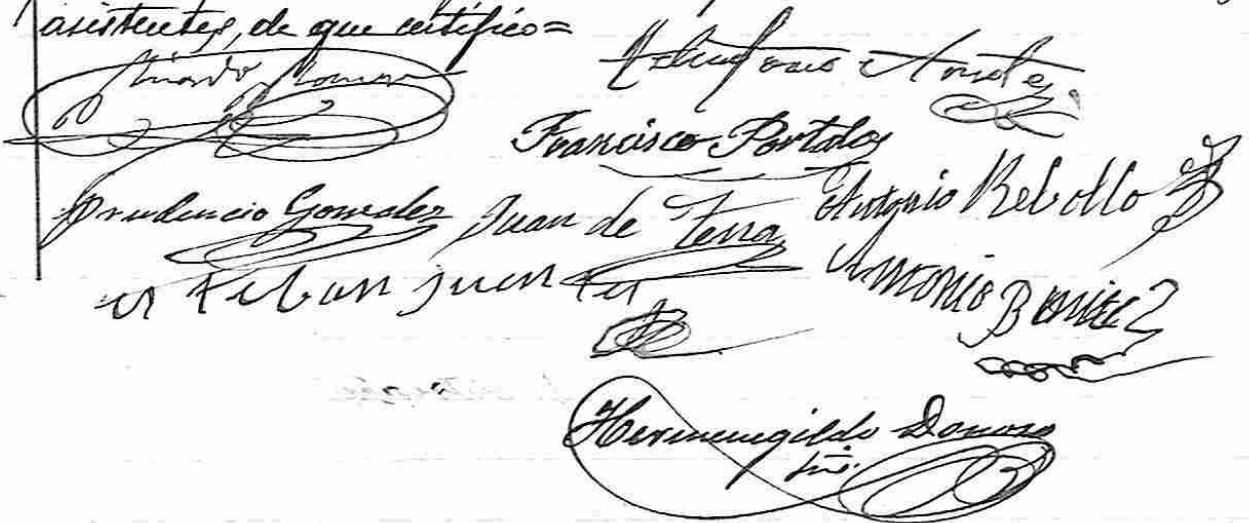 asistentes, de que certifico=
Francisco Portalos
Prudencio Gonzalez Juan de Tena Antonio Rebollo
esteban fuentes Antonio Benitez
Hermenegildo Donoso
srio.